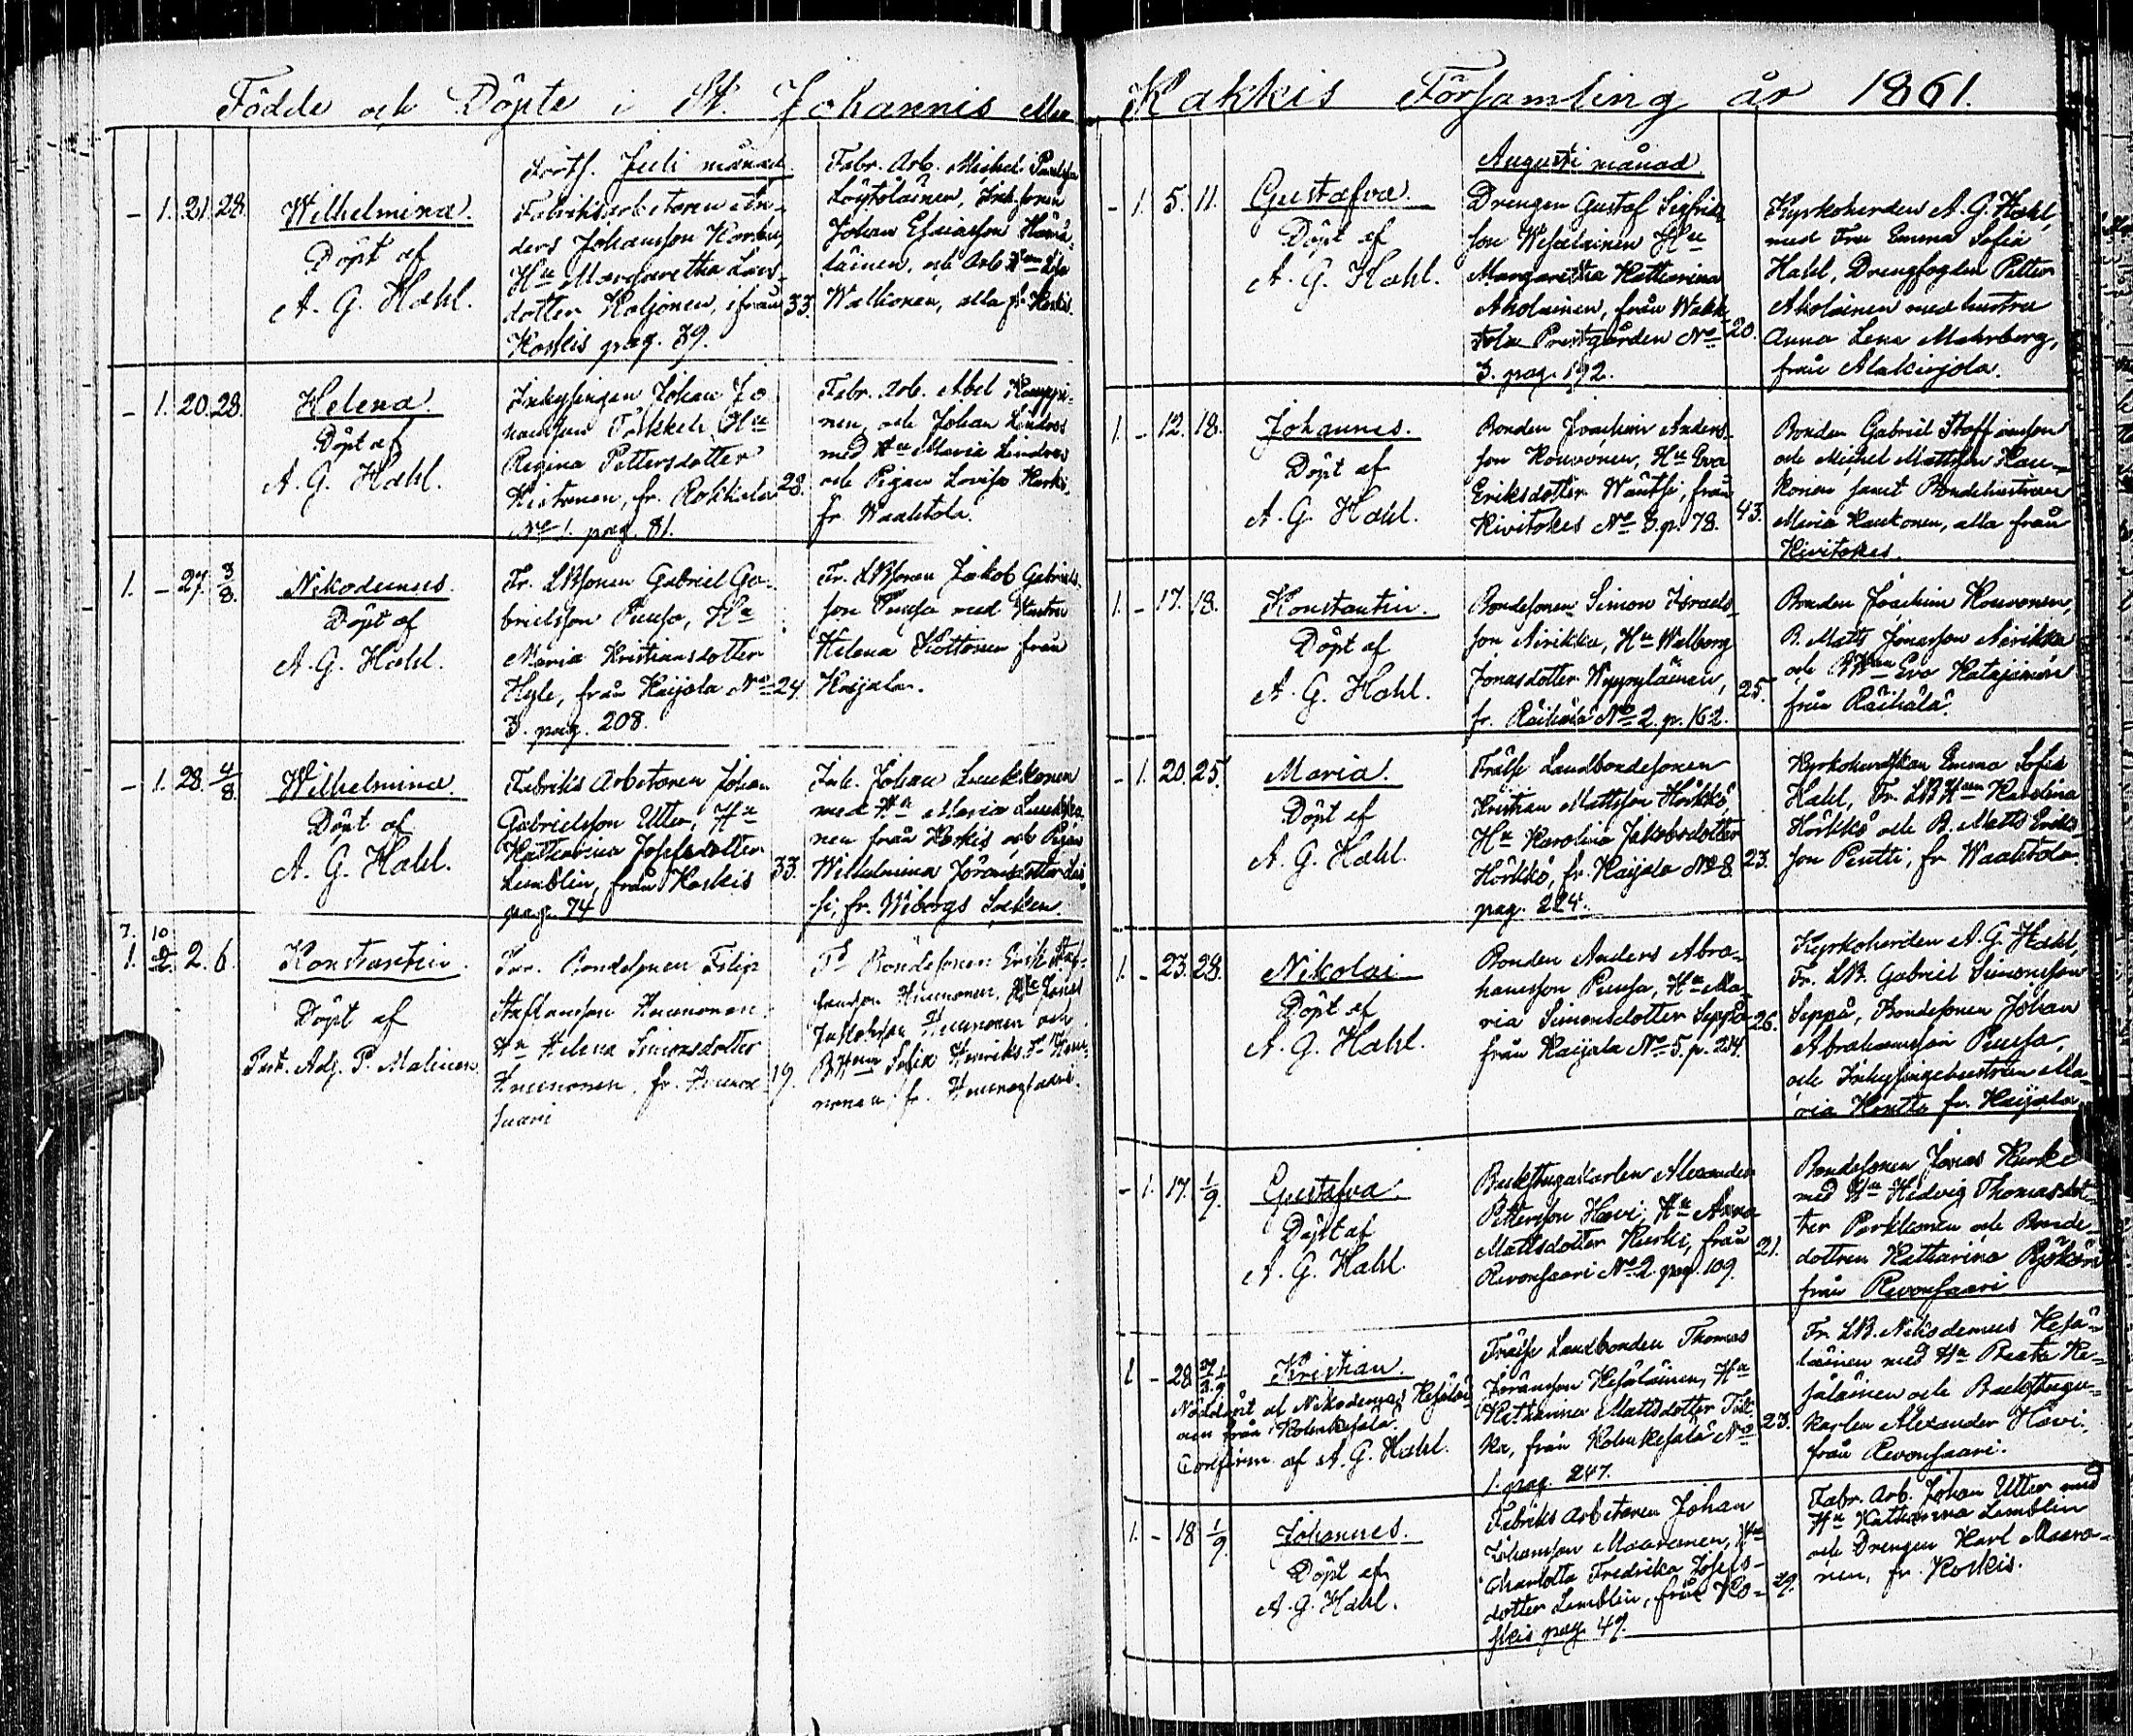 Födde och Döpte i St. Johannis eller
Forts. Juli månad.
- 1. 21. 28.
Wilhelmina.
Döpt af
A. G. Hahl.
Fabriksarbetaren An-
ders Johansson
Hu Margaretha Lars-
dotter Koljonen, ifrån
Koskis pag. 39.
33.
Fabr. Arb. Michel
Löytöläinen, Inh. sonen
Johan Esaiasson Hämä-
läinen, och
Wallionen, alla fr. Koskis.
- 1. 20. 28.
Helena.
Döpt af
A. G. Hahl.
Inhysingen Johan Jo-
hansson Hu
Regina Pettersdotter
fr. Rokkala
No 1. pag. 81.
28.
Fabr. Arb. Abel Kamppi-
nen, och Johan Lindroos
med Hu Maria Lindroos
och Pigan Lovisa
fr. Waahtola.
1. - 27. 3/8.
Nikodemus.
Döpt af
A. G. Hahl.
Fr. LBsonen Gabriel Ga-
brielsson Puusa, Hu
Maria Kristiansdotter
Hyle, från Kaijala No
3. pag. 208.
24.
Fr. LBsonen Jakob Gabriels-
son Puusa med Hustru
Helena från
Kaijala.
- 1. 28. 4/8.
Wilhelmina.
Döpt af
A. G. Hahl.
Fabriks Arbetaren Johan
Gabrielsson Utter, Hu
Katharina Josefsdotter
Lemblin, från Koskis
pag. 74
33.
Inh. Johan Luukkonen
med Hu Maria Luukko-
nen från Koskis och Pigan
Wilhelmina
fr. Wiborgs Socken.
7. 10
1. 2. 6.
Konstantin.
Döpt af
Past. Adj. P. Malinen.
Bondesonen Filip
Staffansson Huunonen
Hu Helena Simonsdotter
Huunonen, fr.
suari
19.
Bondesonen Erik Staf-
fansson Huunonen,
Huunonen och
Sofia Henriksd.
nonen, fr.
Kakkis Församling år 1861.
Augusti månad.
- 1. 5. 11.
Gustafva.
Döpt af
A. G. Hahl.
Drengen Gustaf Sigfrids-
son Wesalainen Hu
Margaretha Katharina
Aholainen, från Waah-
tola Prestgården No
3. pag. 192.
20.
Kyrkoherden A. G. Hahl,
med Fru Emma Sofia
Hahl, Drengfogden Petter
Aholainen med hustru
Anna Lena Mohrberg,
från Alakirjola.
1. - 12. 18.
Johannes.
Döpt af
A. G. Hahl.
Bonden Joachim Anders-
son Kouvonen, Hu Eva
Eriksdotter Wäntsi, från
Kivitokes No 3. p. 78.
43.
Bonden Gabriel Staffansson
och Michel Mattsson Kau-
konen samt Bondehustrun
Maria Kaukonen, alla från
Kivitokes.
1. - 17. 18.
Konstantin.
Döpt af
A. G. Hahl.
Bondesonen Simon Israels-
son Airikka, Hu Walborg
Jonasdotter
fr. Räihälä No 2. p. 162.
25.
Bonden Joachim Kouvonen,
B. Matts Jonasson Airikka
och BHun Eva Katajainen
från Räihälä.
- 1. 20. 25.
Maria.
Döpt af
A. G. Hahl.
Frälse Landbondesonen
Kristian Mattsson Hörkkö,
Hu Karolina Jakobsdotter
Hörkkö, fr. Kaijala No 8
pag. 224.
23.
Kyrkoherdskan Emma Sofia
Hahl, Fr. LBHun Karolina
Hörkkö och B. Matts Eriks-
son Pentti, fr. Waahtola.
1. - 23. 28.
Nikolai
Döpt af
A. G. Hahl.
Bonden Anders Abra-
hamsson Puusa, Hu Ma-
ria Simonsdotter Seppä
från Kaijala No 5. p. 214.
26.
Kyrkoherden A. G. Hahl,
Fr. LB. Gabriel Simonsson
Seppä, Bondesonen Johan
Abrahamsson Puusa,
och Inhysingehustrun Ma-
ria Kontto fr. Kaijala.
- 1. 17. 1/9.
Gustafva.
Döpt af
A. G. Hahl.
Backstugakarlen Alexander
Pettersson Hävi, Hu Anna
Mattsdotter Kurki, från
Revonsaari No 2. pag. 109.
21.
Bondesonen Jonas Kurki
med Hu Hedvig Thomasdot-
ter och Bonde-
dottren Katharina
från Revonsaari
1 - 28
Kristian.
Nöddöpt af Nikodemus Kesäläi-
nen från Kolmikesälä.
Confirm. af A. G. Hahl.
Frälse Landbonden Thomas
Göransson Kesäläinen, Hu
Katharina Mattsdotter
från Kolmikesälä No
1. pag. 247.
23.
Fr. LB. Nikodemus Kesä-
läinen med Hu Beata Ke-
säläinen och Backstugu-
karlen Alexander Hävi,
från Revonsaari.
1. - 18 1/9.
Johannes.
Döpt af
A. G. Hahl.
Fabriks Arbetaren Johan
Johansson Maaranen, Hu
Charlotta Fredrika Josefs-
dotter Lemblin, från Ko-
skis pag. 49.
29.
Fabr. Arb. Johan Utter med
Hu Katharina Lemblin
och Drengen Karl Maara-
nen, fr. Koskis.